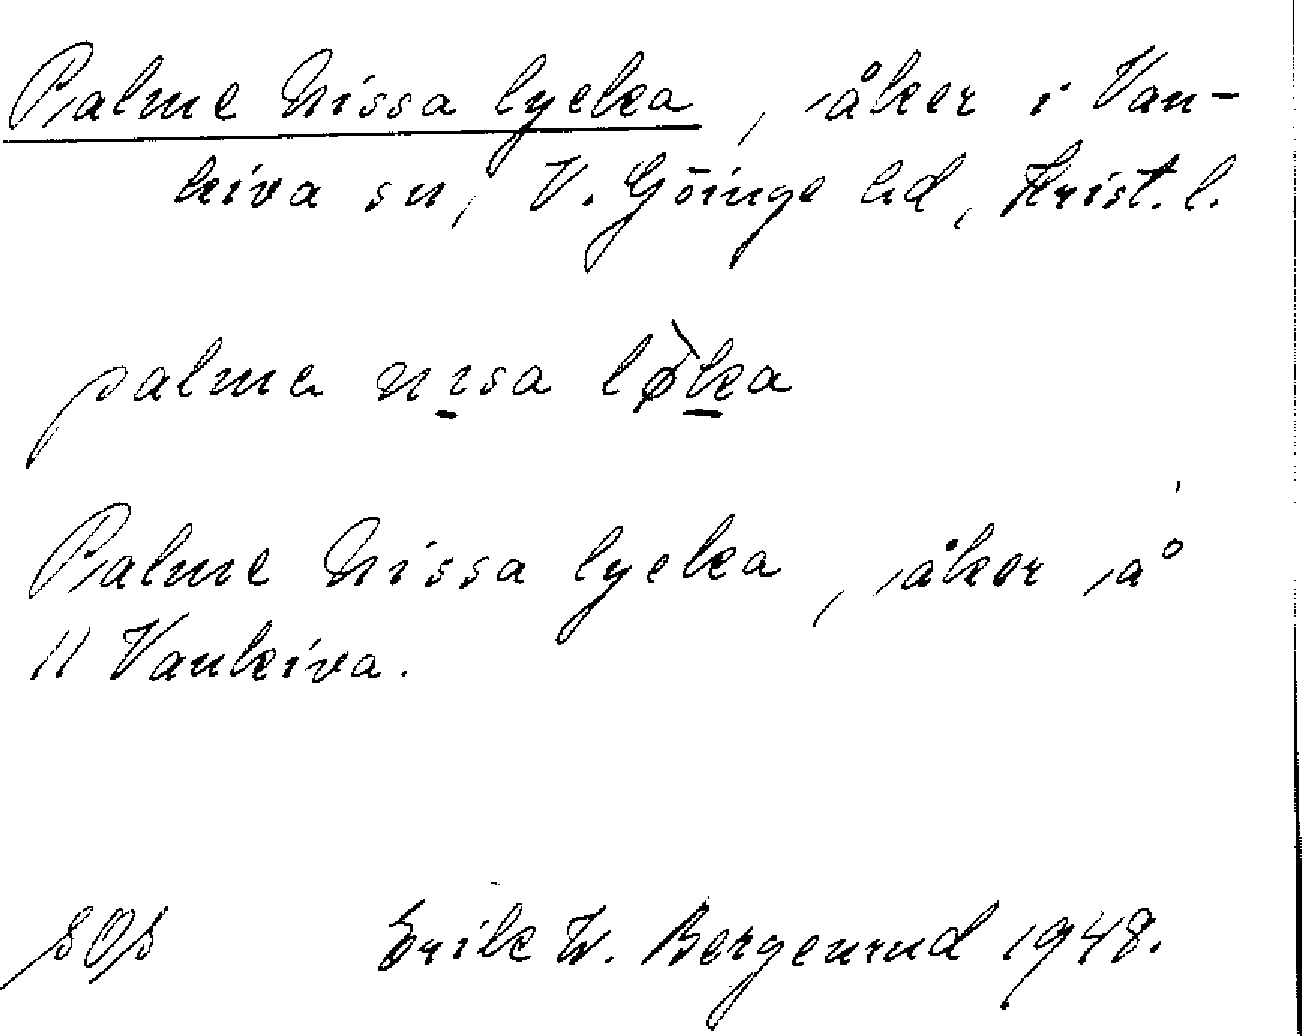 Palme Nissa lycka, åker i Van-
kiva sn, V. Göinge hd, Krist. l.
palme nısa lø̀ka
Palme Nissa lycka, åker å
11 Vankiva.
SOS Erik W. Bergenrud 1948.